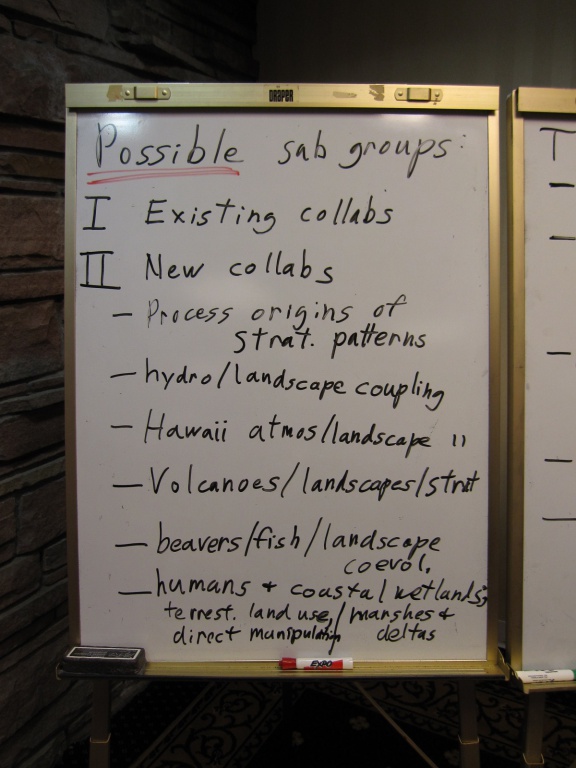 DRAPER
Possible sub groups:
I Existing collabs
II New collabs
- Process origins of
strat. patterns
- hydro/landscape coupling
- Hawaii atmos/landscape "
- Volcanoes/landscapes/strat
- beavers/fish/landscape
coevol.
- humans + coastal wetlands;
terrest. land use,/marshes +
direct manipulation deltas
EXPO
T